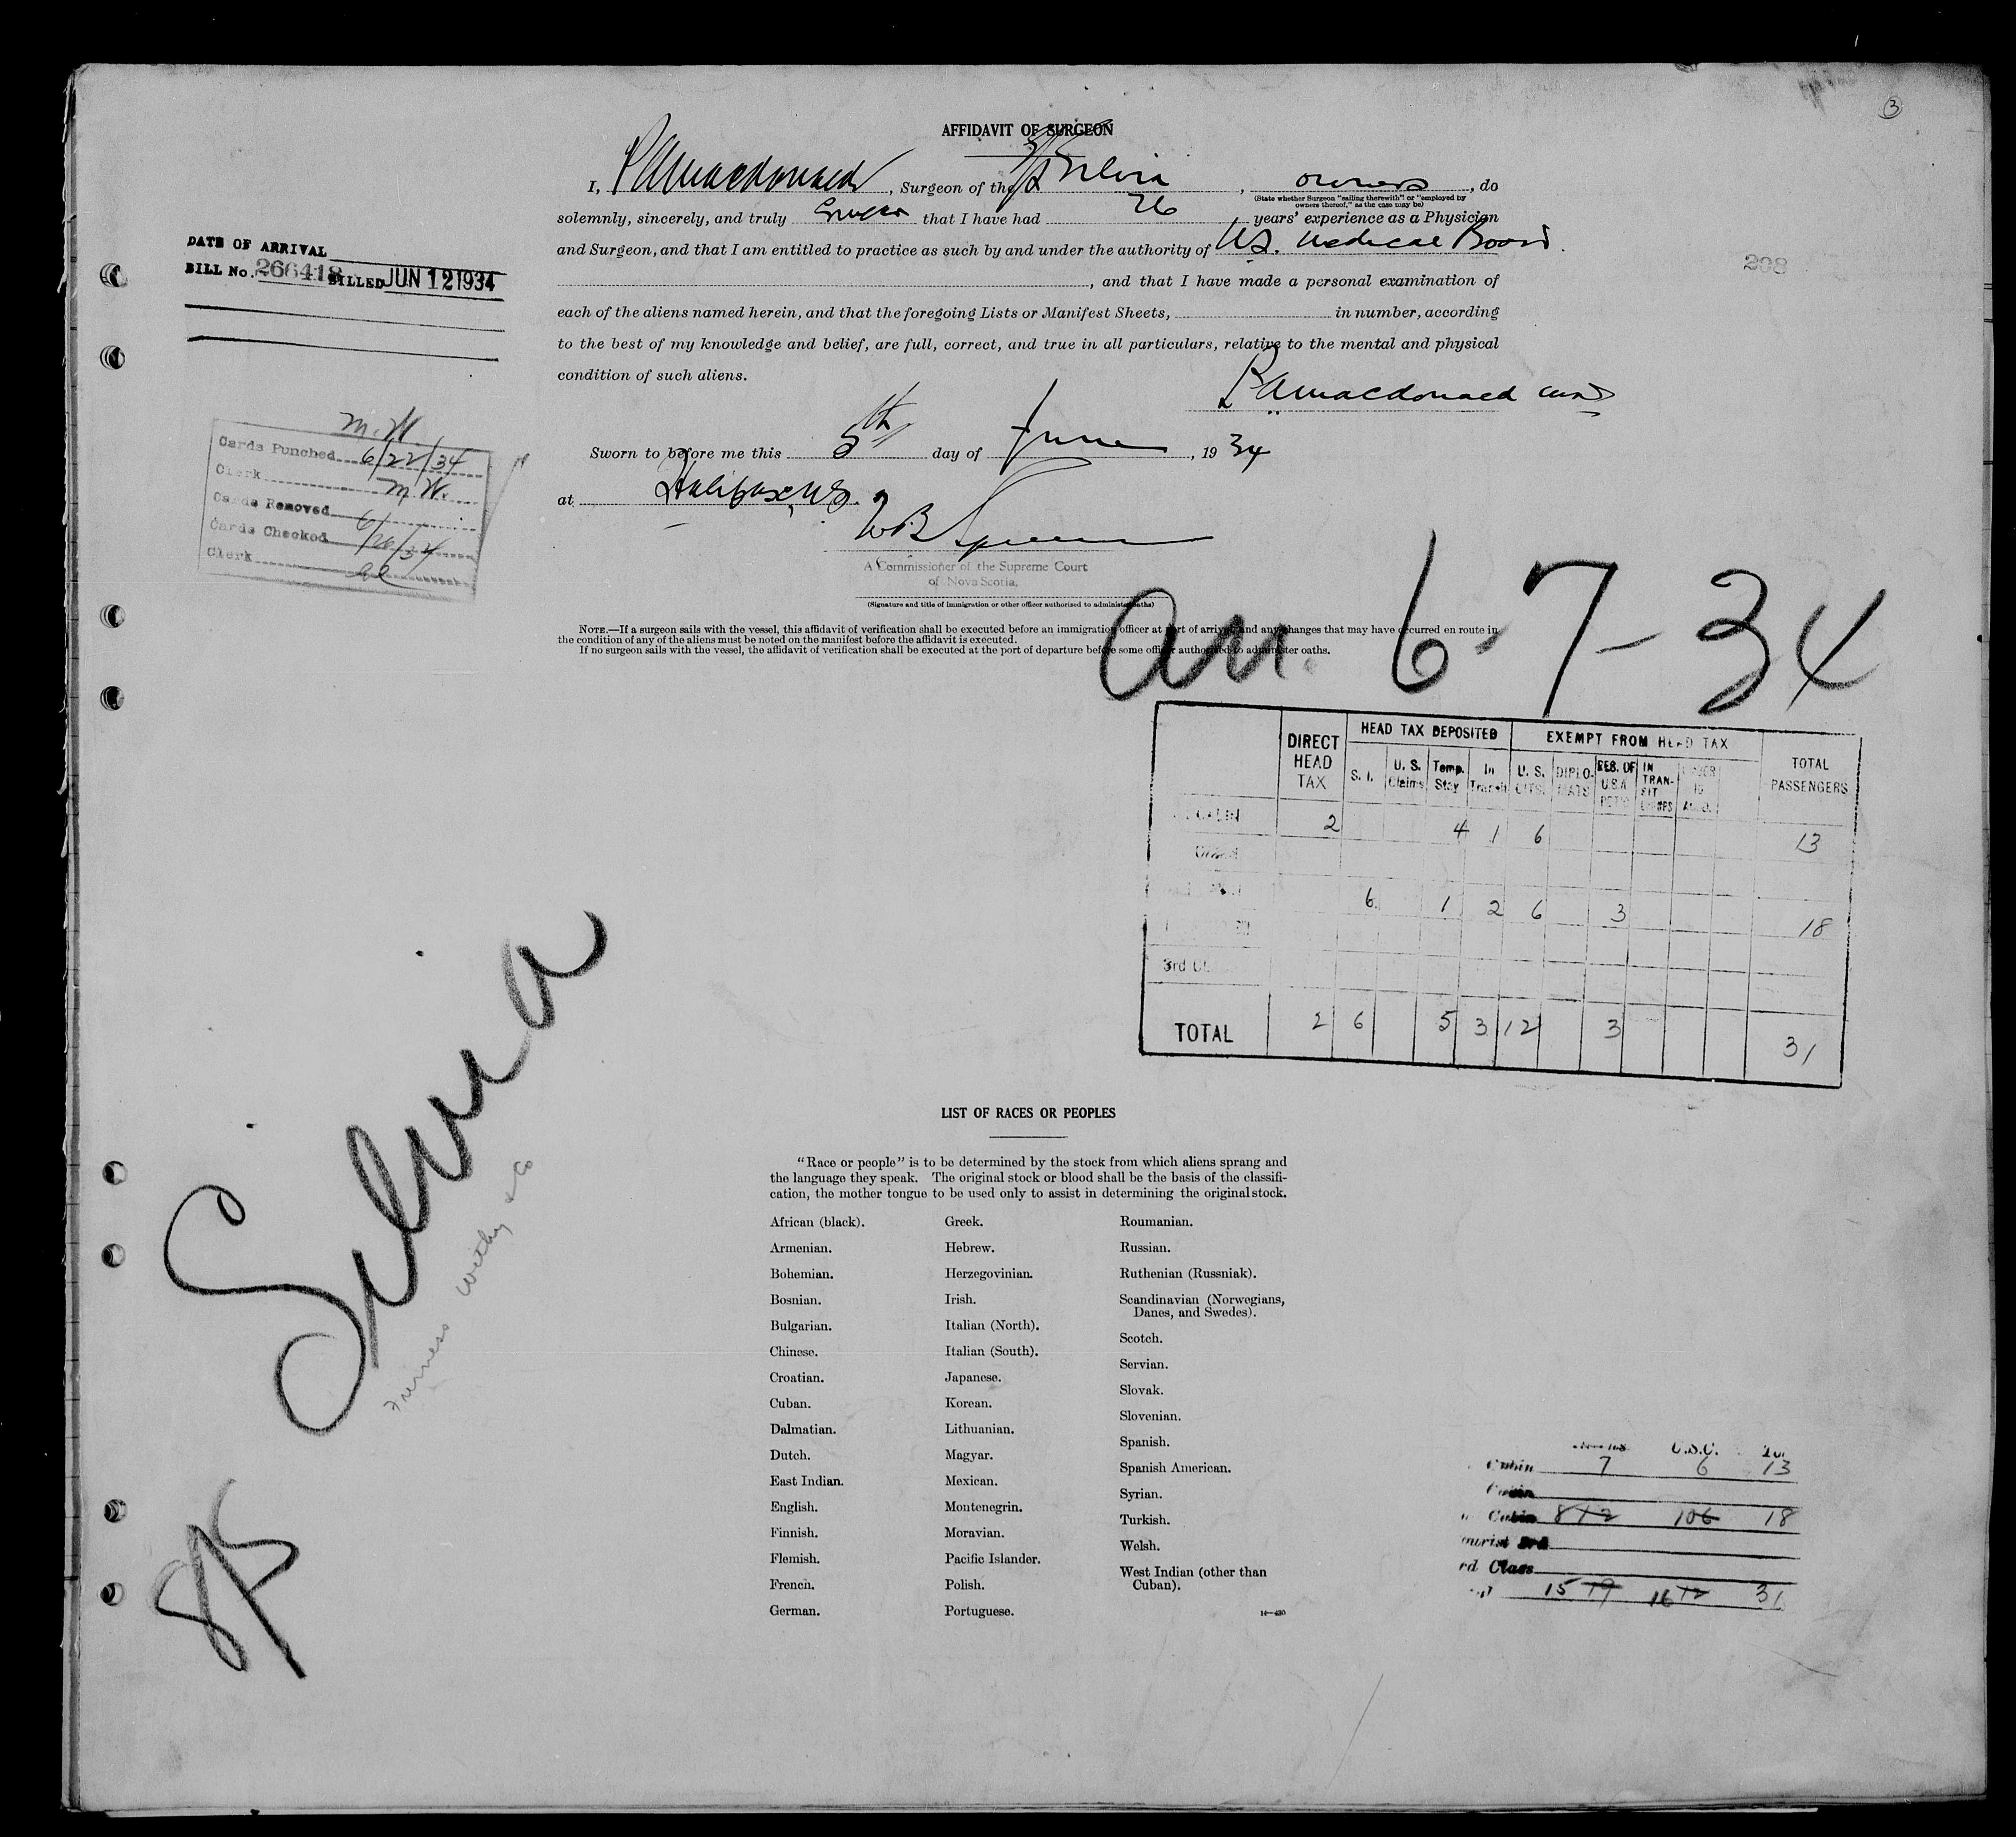 3
AFFIDAVIT OF SURGEON
I, P A Macdonald, Surgeon of the S/S Silvia, owners, do
(State whether Surgeon "sailing therewith" or "employed by
owners thereof," as the case may be)
solemnly, sincerely, and truly swear that I have had 26 years' experience as a Physician
and Surgeon, and that I am entitled to practice as such by and under the authority of N.S. Medical Board.
, and that I have made a personal examination of
each of the aliens named herein, and that the foregoing Lists or Manifest Sheets, in number, according
to the best of my knowledge and belief, are full, correct, and true in all particulars, relative to the mental and physical
condition of such aliens.
P A Macdonald MD
Sworn to before me this 5th day of June, 1934
at Halifax, N.S.
W B
A Commissioner of the Supreme Court
of Nova Scotia.
(Signature and title of immigration or other officer authorized to administer oaths)
NOTE.—If a surgeon sails with the vessel, this affidavit of verification shall be executed before an immigration officer at port of arrival and any changes that may have occurred en route in
the condition of any of the aliens must be noted on the manifest before the affidavit is executed.
If no surgeon sails with the vessel, the affidavit of verification shall be executed at the port of departure before some officer authorized to administer oaths.
DATE OF ARRIVAL
BILL No. 266418 BILLED JUN 12 1934
208
M. W.
Cards Punched 6/22/34
Clerk M. W.
Cards Removed
Cards Checked 6/26/34
Clerk
Arr. 6-7-34
DIRECT HEAD TAX HEAD TAX DEPOSITED EXEMPT FROM HEAD TAX TOTAL PASSENGERS
S. I. U. S. Claims Temp. Stay In Transit U. S. CITS. DIPLOMATS RES. OF U.S.A. IN TRANSIT
CABIN 2 4 1 6 13
6 1 2 6 3 18
3rd CL
TOTAL 2 6 5 3 12 3 31
Silvia
Furness Withy & Co
85
LIST OF RACES OR PEOPLES
"Race or people" is to be determined by the stock from which aliens sprang and
the language they speak. The original stock or blood shall be the basis of the classifi-
cation, the mother tongue to be used only to assist in determining the original stock.
African (black).
Armenian.
Bohemian.
Bosnian.
Bulgarian.
Chinese.
Croatian.
Cuban.
Dalmatian.
Dutch.
East Indian.
English.
Finnish.
Flemish.
French.
German.
Greek.
Hebrew.
Herzegovinian.
Irish.
Italian (North).
Italian (South).
Japanese.
Korean.
Lithuanian.
Magyar.
Mexican.
Montenegrin.
Moravian.
Pacific Islander.
Polish.
Portuguese.
Roumanian.
Russian.
Ruthenian (Russniak).
Scandinavian (Norwegians,
Danes, and Swedes).
Scotch.
Servian.
Slovak.
Slovenian.
Spanish.
Spanish American.
Syrian.
Turkish.
Welsh.
West Indian (other than
Cuban).
14—430
U.S.C.
Cabin 7 6 13
Cabin
Cabin 8 12 10 6 18
rd Class
15 19 16 12 31